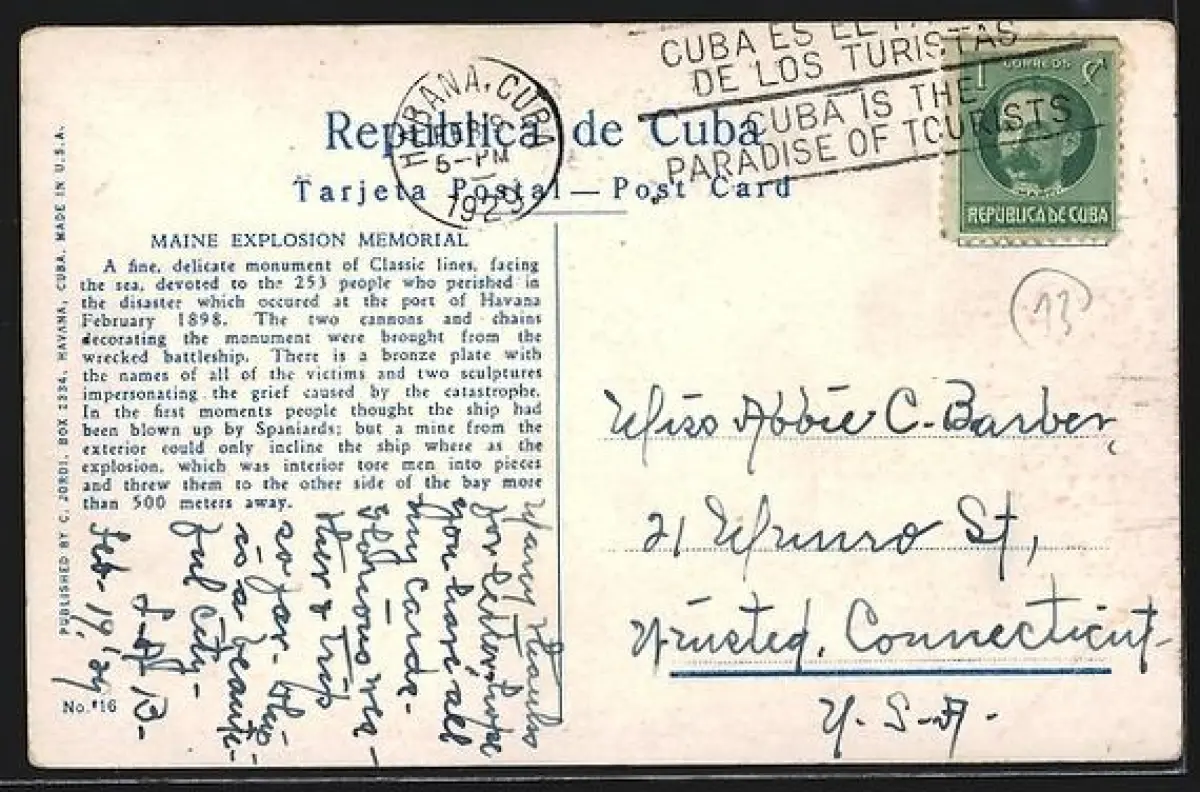 CUBA ES EL
DE LOS TURISTAS
CUBA IS THE
PARADISE OF TOURISTS
HABANA, CUBA
FEB 19
5-PM
1929
1 CORREOS
REPÚBLICA DE CUBA
República de Cuba
Tarjeta Postal — Post Card
MAINE EXPLOSION MEMORIAL
A fine, delicate monument of Classic lines, facing
the sea, devoted to the 253 people who perished in
the disaster which occured at the port of Havana
February 1898. The two cannons and chains
decorating the monument were brought from the
wrecked battleship. There is a bronze plate with
the names of all of the victims and two sculptures
impersonating the grief caused by the catastrophe.
In the first moments people thought the ship had
been blown up by Spaniards; but a mine from the
exterior could only incline the ship where as the
explosion, which was interior tore men into pieces
and threw them to the other side of the bay more
than 500 meters away.
PUBLISHED BY C. JORDI, BOX 1334, HAVANA, CUBA. MADE IN U.S.A.
No. 116
13
Miss Abbie C. Barber,
21 Munro St,
Winsted, Connecticut
U. S. A.
Many thanks
for letter. Hope
you have all
my cards.
Glorious wea-
ther & trip
so far. This
is a beauti-
ful city.
Feb. 19, '29